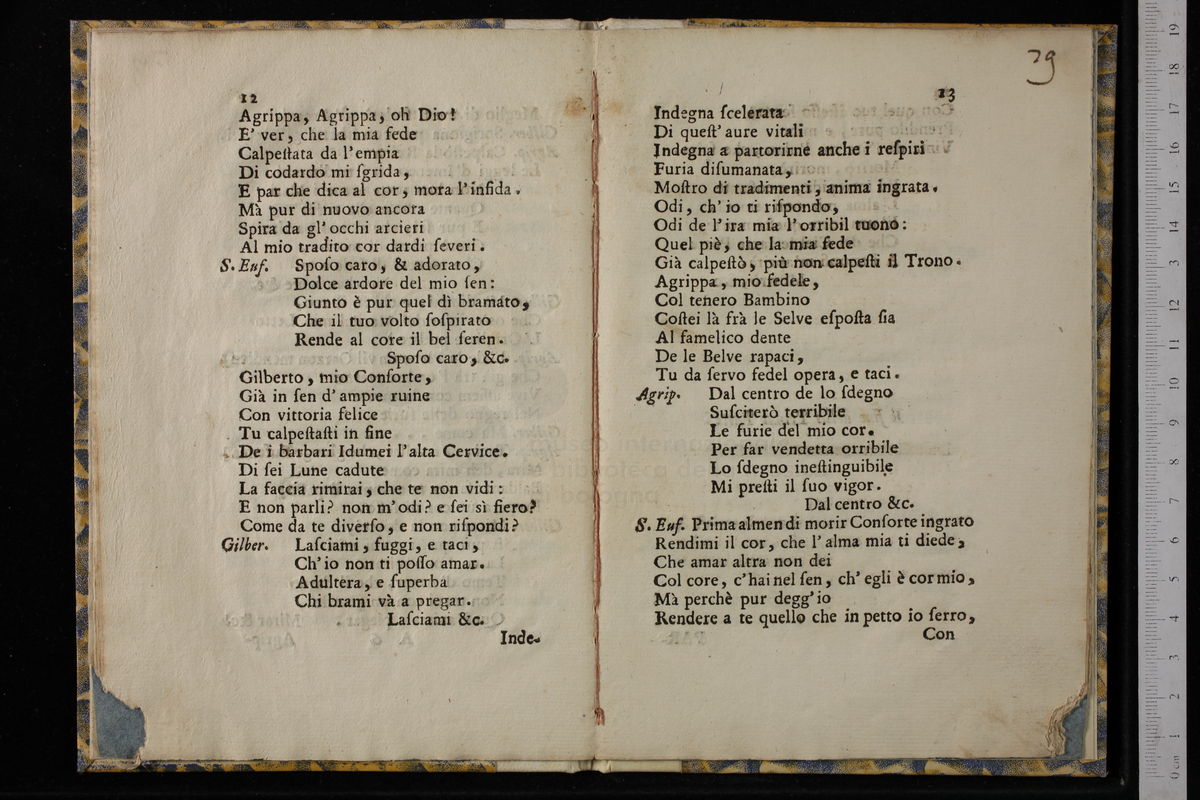 12
Agrippa, Agrippa, oh Dio!
E' ver, che la mia fede
Calpeſtata da l'empia
Di codardo mi ſgrida,
E par che dica al cor, mora l'infida.
Mà pur di nuovo ancora
Spira da gl' occhi arcieri
Al mio tradito cor dardi ſeveri.
S. Euf. Spoſo caro, & adorato,
Dolce ardore del mio ſen:
Giunto è pur quel dì bramato,
Che il tuo volto ſoſpirato
Rende al core il bel ſeren.
Spoſo caro, &c.
Gilberto, mio Conſorte,
Già in ſen d' ampie ruine
Con vittoria felice
Tu calpeſtaſti in fine
De i barbari Idumei l'alta Cervice.
Di ſei Lune cadute
La faccia rimirai, che te non vidi:
E non parli? non m'odi? e ſei sì fiero?
Come da te diverſo, e non riſpondi?
Gilber. Laſciami, fuggi, e taci,
Ch' io non ti poſſo amar.
Adultera, e ſuperba
Chi brami và a pregar.
Laſciami &c.
Inde-
39
13
Indegna ſcelerata
Di queſt' aure vitali
Indegna a partorirne anche i reſpiri
Furia diſumanata,
Moſtro di tradimenti, anima ingrata.
Odi, ch' io ti riſpondo,
Odi de l'ira mia l'orribil tuono:
Quel piè, che la mia fede
Già calpeſtò, più non calpeſti il Trono.
Agrippa, mio fedele,
Col tenero Bambino
Coſtei là frà le Selve eſpoſta ſia
Al famelico dente
De le Belve rapaci,
Tu da ſervo fedel opera, e taci.
Agrip. Dal centro de lo ſdegno
Suſciterò terribile
Le furie del mio cor.
Per far vendetta orribile
Lo ſdegno ineſtinguibile
Mi preſti il ſuo vigor.
Dal centro &c.
S. Euf. Prima almen di morir Conſorte ingrato
Rendimi il cor, che l' alma mia ti diede,
Che amar altra non dei
Col core, c'hai nel ſen, ch' egli è cor mio,
Mà perchè pur degg' io
Rendere a te quello che in petto io ſerro,
Con
0 cm 1 2 3 4 5 6 7 8 9 10 11 12 13 14 15 16 17 18 19